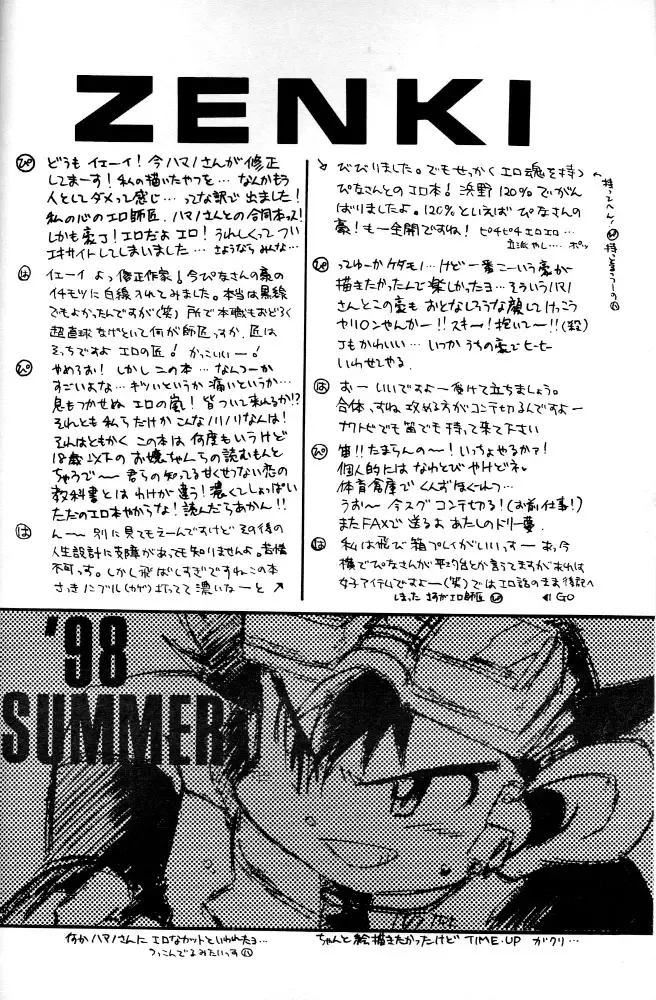 ZENKI
ぴ どうも イエーイ!今ハマノさんが修正
してまーす!私の描いたやつを…なんかもう
人としてダメって感じ…ってな訳で出ました!
私の心のエロ師匠、ハマノさんとの合同本っス!
しかも豪!エロだよエロ!うれしくってつい
エキサイトしてしまいました…さようなら みんな…
は イエーイ よっ修正作家!今ぴなさんの豪の
イチモツに白線入れてみました。本当は黒線
でもよかったんですが(笑)所で本職もおどろく
超直球なげといて何が師匠っすか、匠は
そっちですよ エロの匠! かっこいいー!
ぴ やめろお!しかしこの本…なんつーか
すごいよな…キツいというか痛いというか…
息もつかせぬ エロの嵐!皆ついて来れるか!?
それとも私らだけか こんなノリノリなんは!
それはともかく この本は何度もいうけど
18歳以下のお嬢ちゃんらの読むもんと
ちゃうでー 君らの知ってる甘くせつない恋の
教科書とは わけが違う!濃くてしょっぱい
ただのエロ本やからな!読んだらあかん!!
は ん~ 別に見てもえーんですけど その後の
人生設計に支障があっても知りませんよ。苦情
不可っす。しかし飛ばしすぎですねこの本
さっきニブル(カゲ)打ってて濃いなーと ↗
↘ びびりました。でもせっかくエロ魂を持つ
ぴなさんとのエロ本!浜野120%でがん
ばりましたよ。120%といえばぴなさんの
豪!も一全開ですね!ピチピチエロエロ…
ぴ ってゆーかケダモノ…けど一番こーいう豪が
描きたかったんで楽しかったヨ…そういうハマノ
さんとこの豪も おとなしそうな顔してけっこう
ヤリロンやんかー!!スキー!抱いてー!!(殺)
Jもかわいい…いつか うちの豪でヒーヒー
いわせてやる。
は おー いいですよー 受けて立ちましょう。
合体っすね 攻める方がコンテ切るんですよー
ナワトビでも笛でも持って来て下さい
ぴ 笛!!たまらんの~!いっちょやるかァ!
個人的には なわとび やけどネ。
体育倉庫で くんずほぐれつ…
うお~ 今スグ コンテ切る!(お前仕事!)
またFAXで送るよ あたしのドリー夢
は 私は飛び箱プレイがいいっすー あっ今
横でぴなさんが平均台とか言ってますが あれは
女子アイテムですよー(笑)では エロ話のまま後記へ
しまった さすがエロ師匠 ぴ ◀ GO
'98
SUMMER
何かハマノさんに エロなカットといわれたヨ…
つっこんでるみたいっす は
ちゃんと絵描きたかったけど TIME・UP ガクリ…